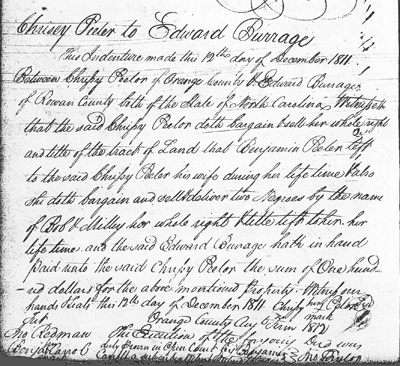 Chrisey Peeler to Edward Burrage
This Indenture made this 12th day of December 1811
Between Chrissy Peeler of Orange County & Edward Burrage
of Rowan County both of the State of North Carolina Witnesseth
that the said Chrissy Peeler doth bargain & sell her whole right
and title of the tract of Land that Benjamin Peeler left
to the said Chrissy Peeler his wife during her life time & also
she doth bargain and sell & deliver two Negroes by the name
of Bob & Milley her whole right & title left to her her
life time and the said Edward Burrage hath in hand
Paid unto the said Chrissy Peeler the sum of One hund-
red dollars for the above mentioned Property. Witness our
hands & Seals this 12th day of December 1811 Chrissy her Peeler
Test mark
Jno Redman Orange County Aug Term 1812
The Execution of the foregoing Deed was
duly Proven in Open Court by Benjamin